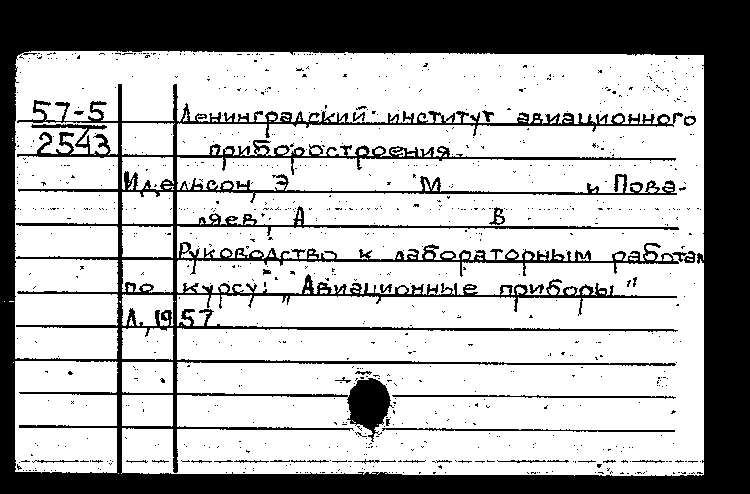 57-5
2543
Ленинградский институт авиационного
приборостроения.
Идельсон, Э М и Пова-
ляев, А В
Руководство к лабораторным работам
по курсу: „Авиационные приборы"
Л., 1957.